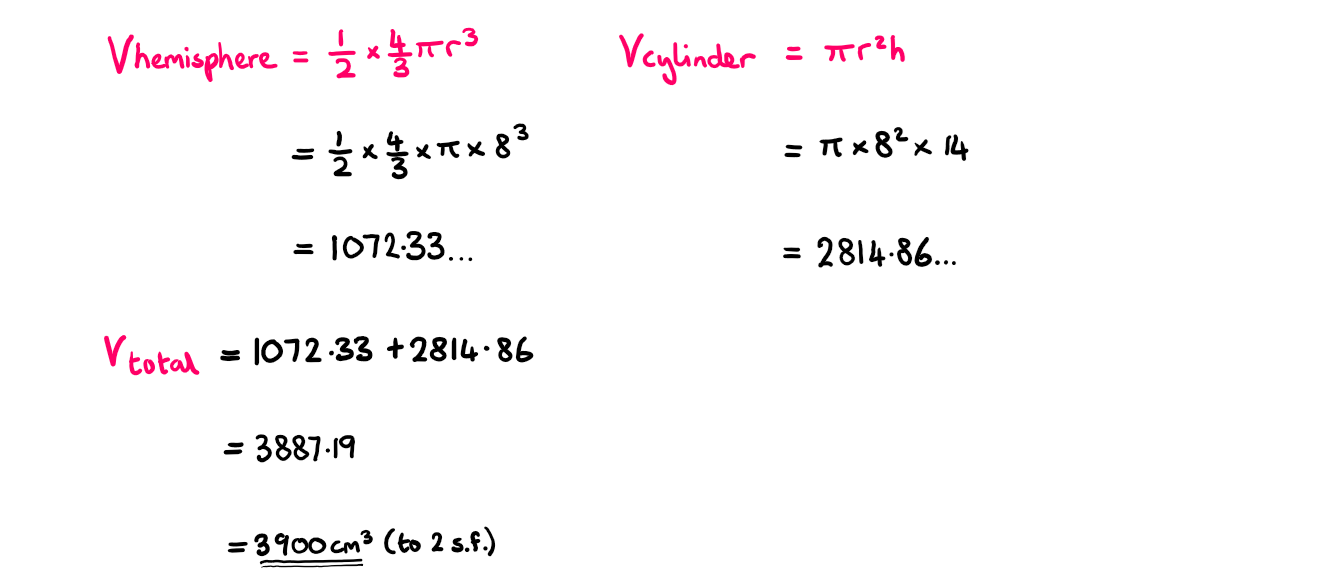 Vhemisphere = 1/2 × 4/3 πr³
= 1/2 × 4/3 × π × 8³
= 1072.33...
Vcylinder = πr²h
= π × 8² × 14
= 2814.86...
Vtotal = 1072.33 + 2814.86
= 3887.19
= 3900 cm³ (to 2 s.f.)